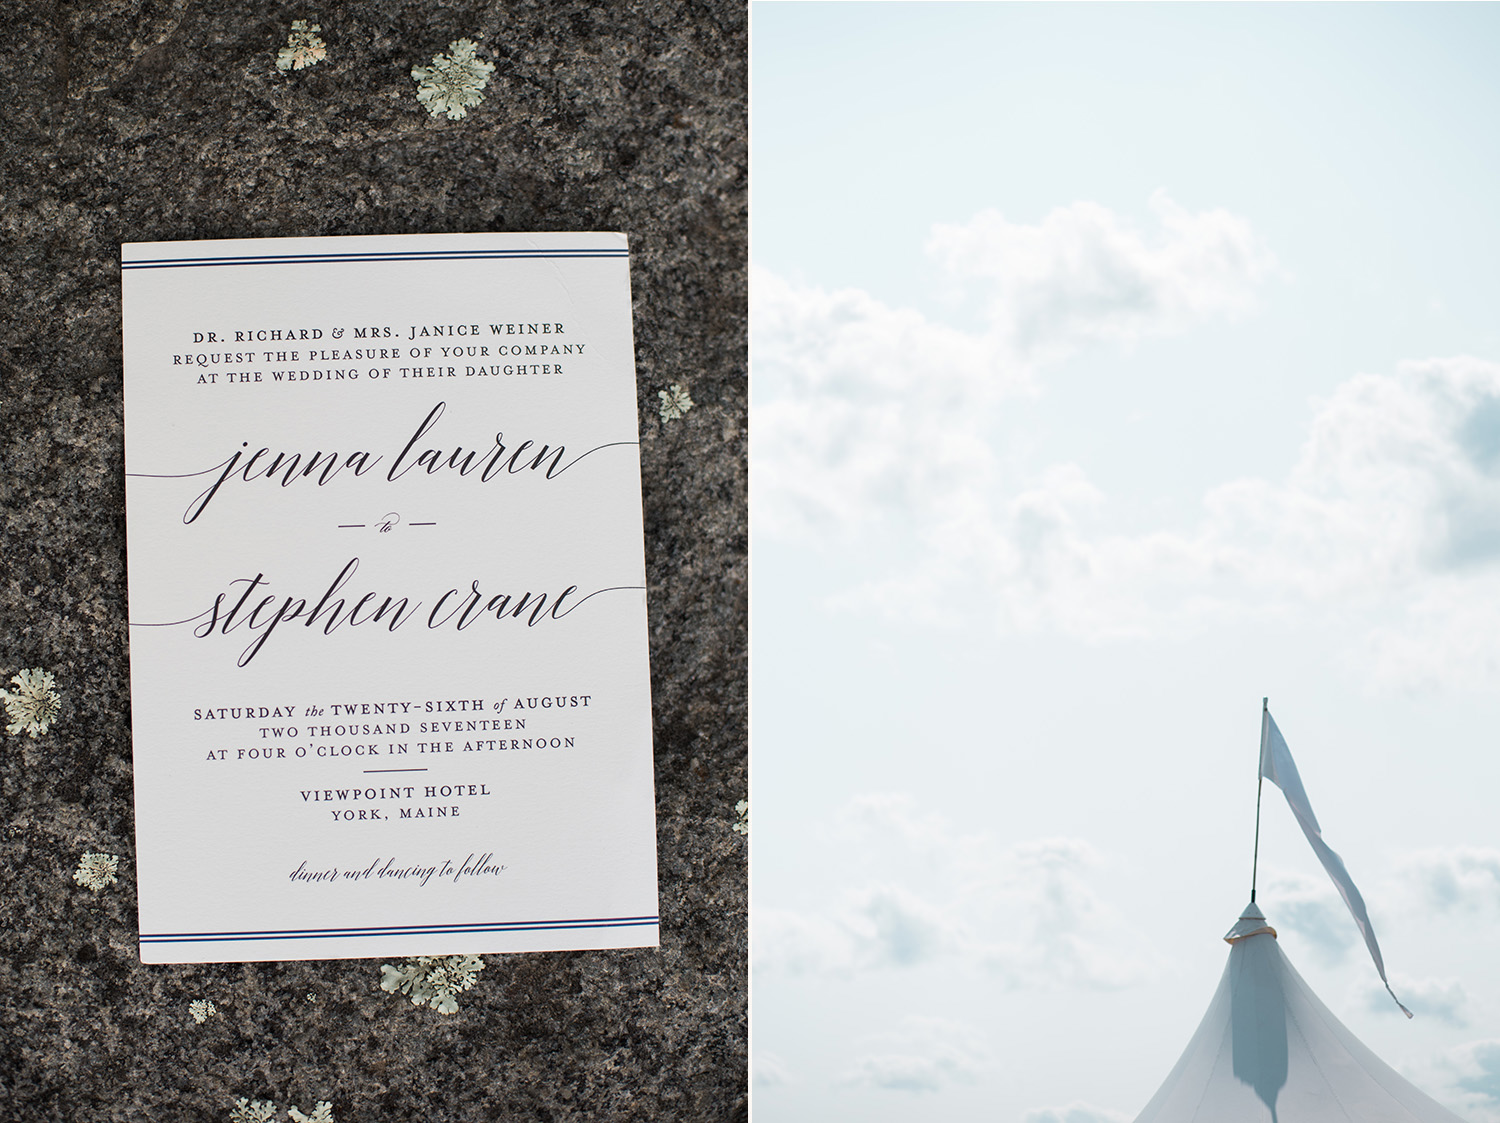 DR. RICHARD & MRS. JANICE WEINER
REQUEST THE PLEASURE OF YOUR COMPANY
AT THE WEDDING OF THEIR DAUGHTER
jenna lauren
— to —
stephen crane
SATURDAY the TWENTY-SIXTH of AUGUST
TWO THOUSAND SEVENTEEN
AT FOUR O'CLOCK IN THE AFTERNOON
VIEWPOINT HOTEL
YORK, MAINE
dinner and dancing to follow